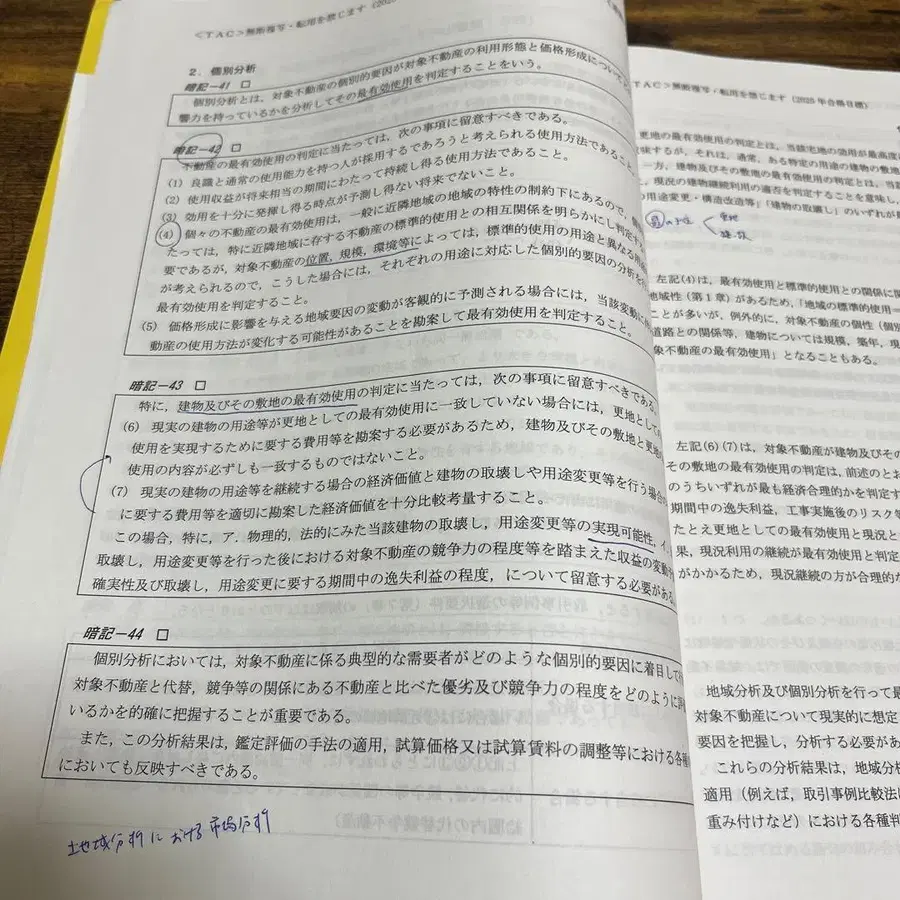 <TAC>無断複写・転用を禁じます(2025
2.個別分析
暗記-41 □
個別分析とは,対象不動産の個別的要因が対象不動産の利用形態と価格形成について
響力を持っているかを分析してその最有効使用を判定することをいう。
暗記-42 □
不動産の最有効使用の判定に当たっては,次の事項に留意すべきである。
(1) 良識と通常の使用能力を持つ人が採用するであろうと考えられる使用方法であること。
(2) 使用収益が将来相当の期間にわたって持続し得る使用方法であること。
(3) 効用を十分に発揮し得る時点が予測し得ない将来でないこと。
(4) 個々の不動産の最有効使用は,一般に近隣地域の地域の特性の制約下にあるので,個
たっては,特に近隣地域に存する不動産の標準的使用との相互関係を明らかにし判定す
要であるが,対象不動産の位置,規模,環境等によっては,標準的使用の用途と異なる用途
が考えられるので,こうした場合には,それぞれの用途に対応した個別的要因の分析を
最有効使用を判定すること。
(5) 価格形成に影響を与える地域要因の変動が客観的に予測される場合には,当該変動に
動産の使用方法が変化する可能性があることを勘案して最有効使用を判定すること。
暗記-43 □
特に,建物及びその敷地の最有効使用の判定に当たっては,次の事項に留意すべきである。
(6) 現実の建物の用途等が更地としての最有効使用に一致していない場合には,更地として
使用を実現するために要する費用等を勘案する必要があるため,建物及びその敷地と更地
使用の内容が必ずしも一致するものではないこと。
(7) 現実の建物の用途等を継続する場合の経済価値と建物の取壊しや用途変更等を行う場合
に要する費用等を適切に勘案した経済価値を十分比較考量すること。
この場合,特に,ア.物理的,法的にみた当該建物の取壊し,用途変更等の実現可能性,イ.
取壊し,用途変更等を行った後における対象不動産の競争力の程度等を踏まえた収益の変動
確実性及び取壊し,用途変更に要する期間中の逸失利益の程度,について留意する必要がある。
暗記-44 □
個別分析においては,対象不動産に係る典型的な需要者がどのような個別的要因に着目して
対象不動産と代替,競争等の関係にある不動産と比べた優劣及び競争力の程度をどのように評
いるかを的確に把握することが重要である。
また,この分析結果は,鑑定評価の手法の適用,試算価格又は試算賃料の調整等における各種
においても反映すべきである。
地域分析における市場分析
TAC>無断複写・転用を禁じます(2025年合格目標)
更地の最有効使用の判定とは,当該更地の効用が最高度に
味するが,それは,通常,ある特定の用途の建物の敷地
一方,建物及びその敷地の最有効使用の判定とは,当該
,現況の建物継続利用の適否を判定することを意味し,
の用途変更・構造改造等」「建物の取壊し」のいずれが
更地
左記(4)は,最有効使用と標準的使用との関係に関
地域性(第1章)があるため,「地域の標準的使用=
ことが多いが,例外的に,対象不動産の個性(個別
道路との関係等,建物については規模,築年,現
象不動産の最有効使用」となることもある。
左記(6)(7)は,対象不動産が建物及びその
その敷地の最有効使用の判定は,前述のとお
のうちいずれが最も経済合理的かを判定す
期間中の逸失利益,工事実施後のリスク等
たとえ更地としての最有効使用と現況と
果,現況利用の継続が最有効使用と判定
がかかるため,現況継続の方が合理的な
地域分析及び個別分析を行って最
対象不動産について現実的に想定
要因を把握し,分析する必要があ
これらの分析結果は,地域分析
適用(例えば,取引事例比較法に
重み付けなど)における各種判